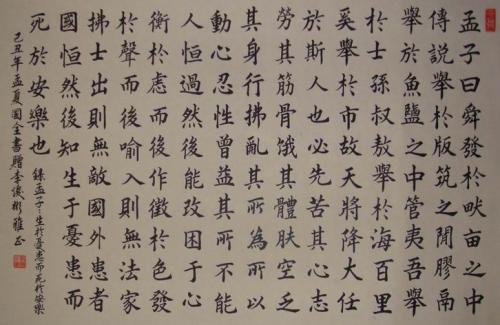 孟子曰舜發於畎亩之中
傳説舉於版筑之間膠鬲
舉於魚鹽之中管夷吾舉
於士孫叔敖舉於海百里
奚舉於市故天將降大任
於斯人也必先苦其心志
勞其筋骨饿其體膚空乏
其身行拂亂其所為所以
動心忍性曾益其所不能
人恒過然後能改困于心
衡於慮而後作徵於色發
於聲而後喻入則無法家
拂士出則無敵國外患者
國恒然後知生于憂患而
死於安樂也
錄孟子：生於憂患而死於安樂
己丑年孟夏國全書贈李俊彬雅正